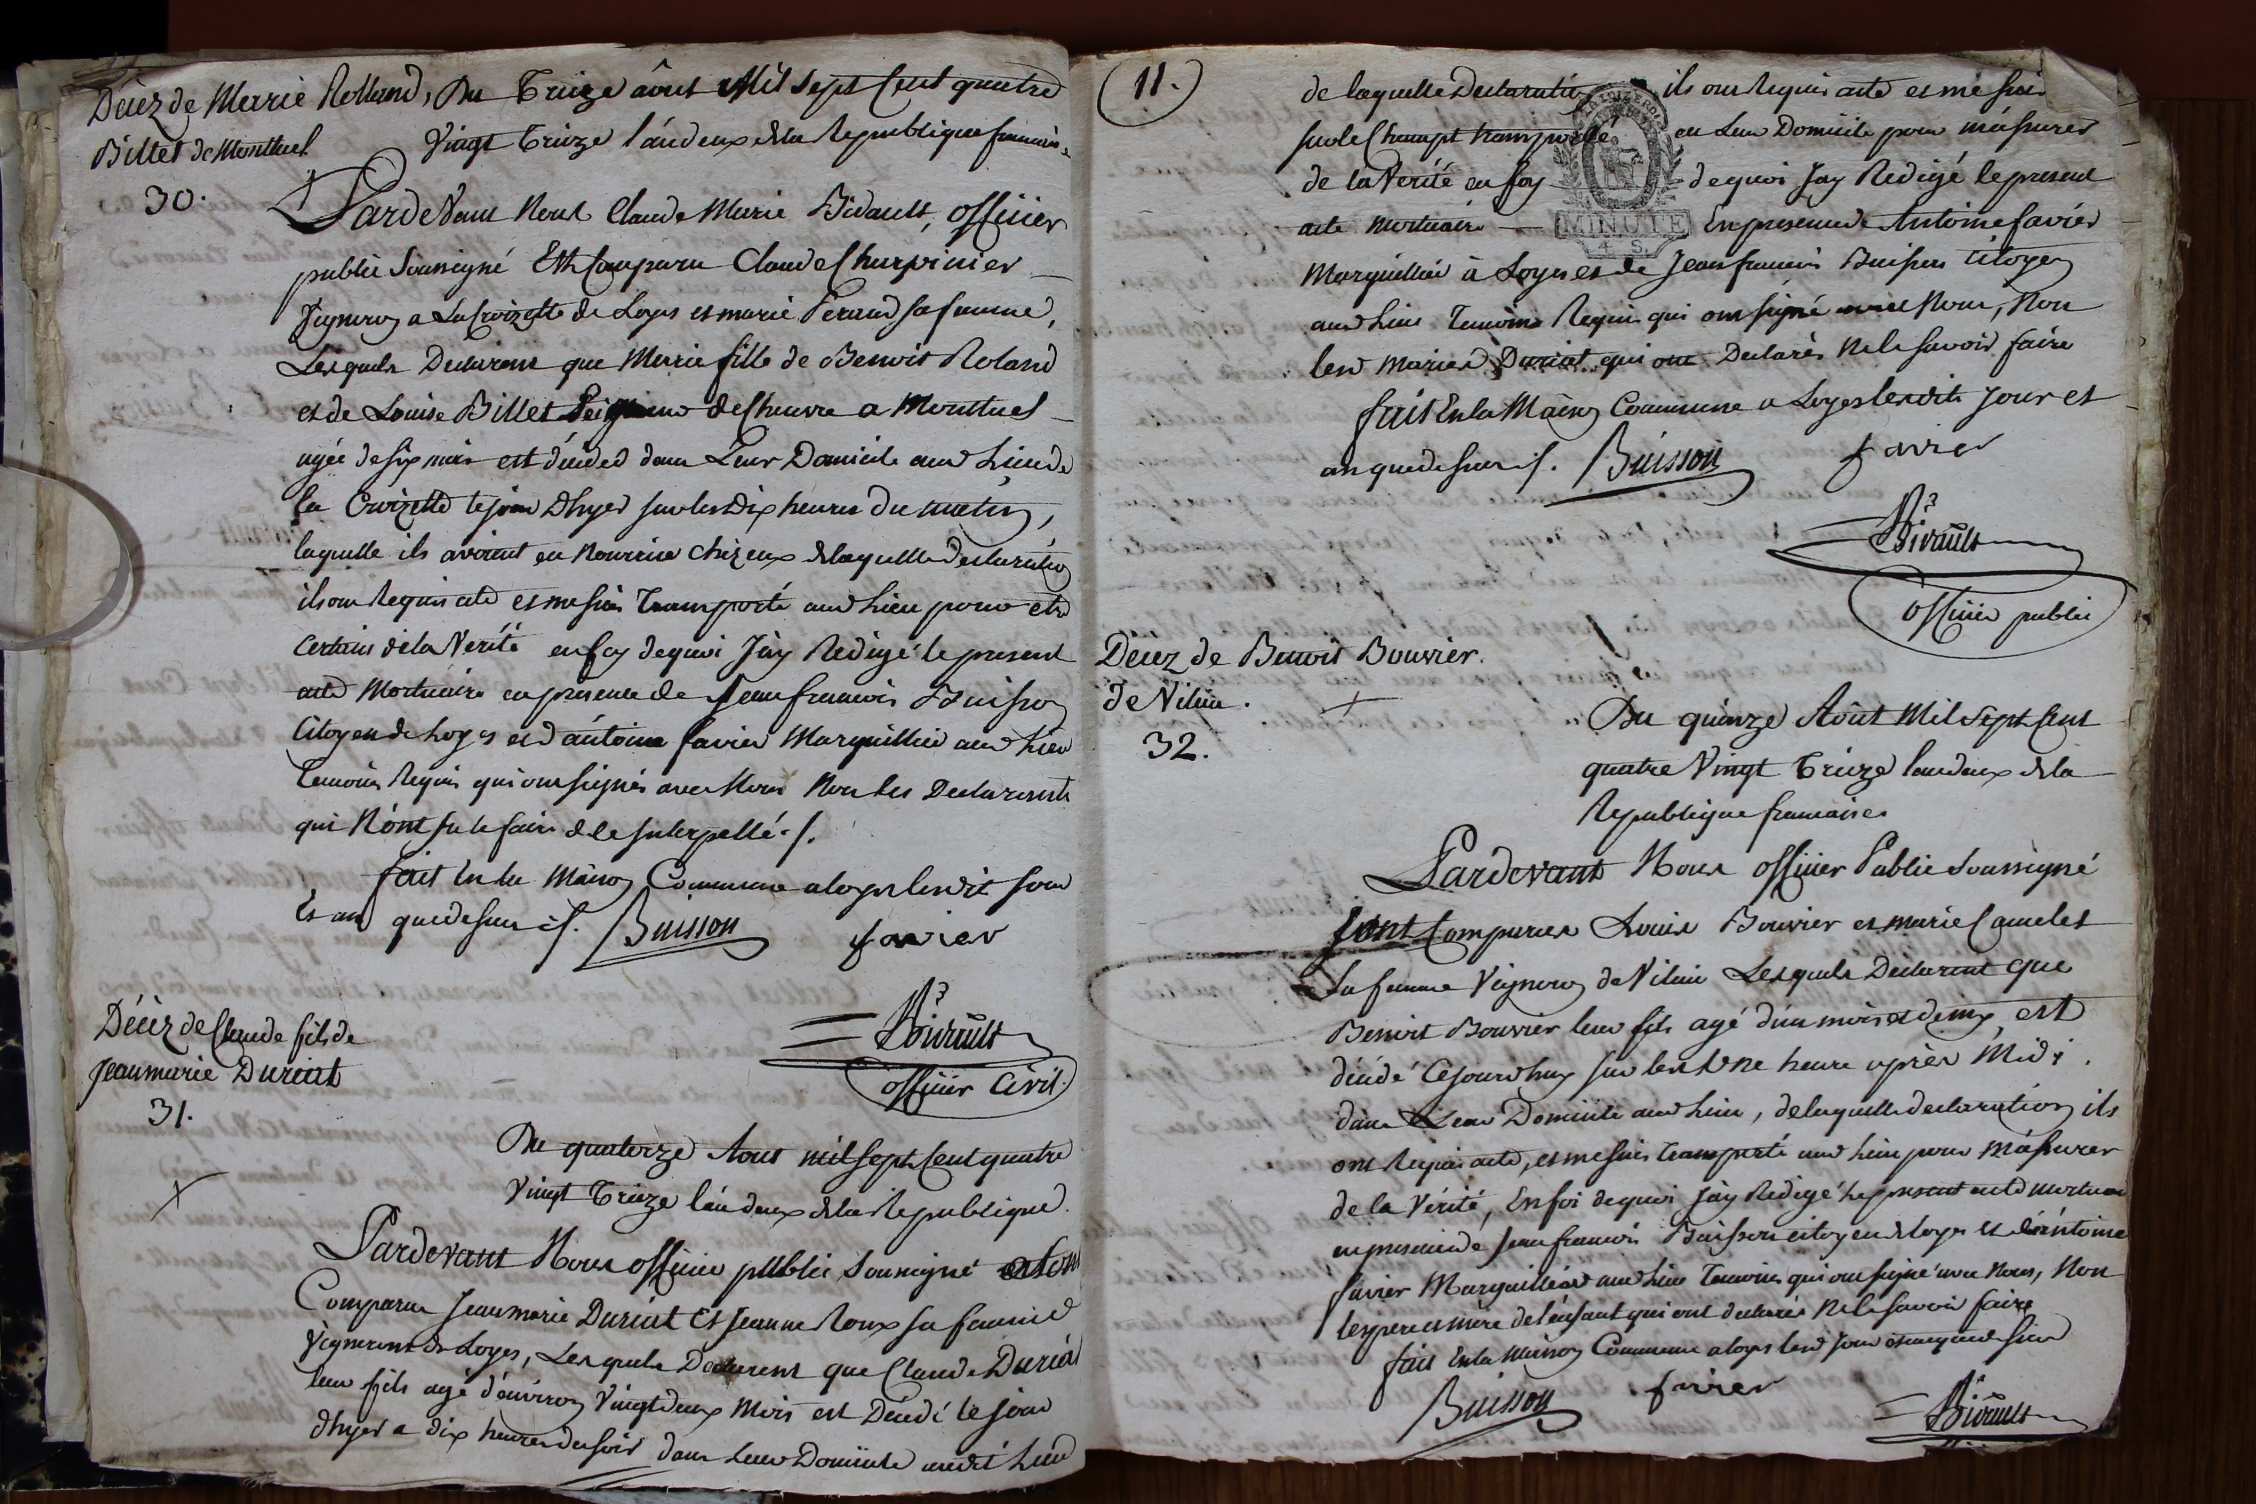 Décez de Marie Rolland, Du Treize âout Mil Sept Cent quatre
Billet de Montluel Vingt Treize l'an deux de la Republique francaise
30.
Pardevant Nous Claude Marie Bivault, officier
public Soussigné Est Comparu Claude Charpinier
Vigneron a La Croizette de Loyes et marie Peraud sa femme,
Lesquels Declarent que Marie fille de Benoit Roland
et de Louise Billet Peigneur de Chanvre a Montluel
agée de six mois est décedée dans Leur Domicile aud Lieu de
la Croizette le jour d'hyer sur les Dix heures du matin,
laquelle ils avoient en Nourrice chez eux de laquelle declaration
ils ont Requis acte et me suis Transporté aud Lieu pour etre
certain de la Verité en foy de quoi J'ay Redigé le present
acte Mortuaire en presence de Jean francois Buisson
Citoyen de Loyes et d'antoine favier Marguillier aud Lieu
Temoins Requis qui ont signés avec Nous Non les Declarants
qui N'ont su le faire de le Interpellé ./.
fait En la Maison Commune a Loyes lesdit jour
Et an que dessus ./. Buisson favier
Bivault
officier Civil.
Décèz de Claude fils de
Jeanmarie Duriat
31.
Du quatorze Aout mil sept Cent quatre
Vingt Treize l'an deux de la Republique.
Pardevant Nous officier public Soussigné ont
Comparu Jeanmarie Duriat Et Jeanne Roux sa femme
Vignerons de Loyes, Lesquels Declarent que Claude Duriat
leur fils agé d'environ Vingt deux Mois est Décedé le jour
d'hyer a dix heures du soir dans Leur Domicile audit Lieu
11.
de laquelle Declaration ils ont Requis acte et me suis
sur le Champt transporté en Leur Domicile pour m'assurer
de la Verité en foy de quoi J'ay Redigé le present
acte mortuaire En presence de Antoine favier
MINUTE
4 S.
Marguillier à Loyes et de Jean francois Buisson Citoyen
aud Lieu Temoins Requis qui ont signé avec Nous, Non
les Mariés Duriat qui ont Declarés Ne le savoir faire
fait En la Maison Commune a Loyes lesdits Jour et
an que dessus ./. Buisson favier
Bivault
officier public
Décez de Benoit Bouvier.
de Vilieu.
32.
Du quinze Aoùt Mil Sept Cent
quatre Vingt Treize l'an deux de la
Republique francaise
Pardevant Nous officier Public Soussigné
sont Comparus Louis Bouvier et marie Camelet
Sa femme Vigneron de Vilieu Lesquels Declarent que
Benoit Bouvier leur fils agé d'un mois et demy, est
décédé Cejourdhuy sur les Une heure après Midi.
dans Leur Domicile aud Lieu, de laquelle declaration ils
ont Requis acte, et me suis transporté aud Lieu pour M'assurer
de la Vérité, En foi de quoi J'ay Redigé le present acte mortuaire
en presence de Jean francois Buisson citoyen de Loyes et d'antoine
favier Marguillier aud Lieu Temoins qui ont signé avec Nous, Non
les pere et mere de l'enfant qui ont declarés Ne le savoir faire
fait En la Maison Commune a Loyes lesd jour et an que dessus
Buisson favier Bivault